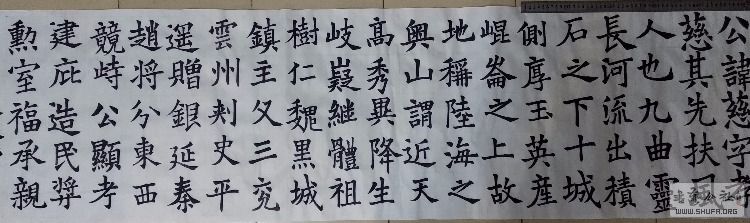 公諱慈字孝
慈其先扶風
人也九曲靈
長河流出積
石之下十城
側厚玉英產
崐崙之上故
地稱陸海之
奧山謂近天
高秀異降生
岐嶷継體祖
樹仁魏黑城
鎮主父三兖
雲州刾史平
遥贈銀延秦
趙將兮東西
競峙公顯考
建庇造民羿
勲室福承親
WWW.SHUFA.ORG